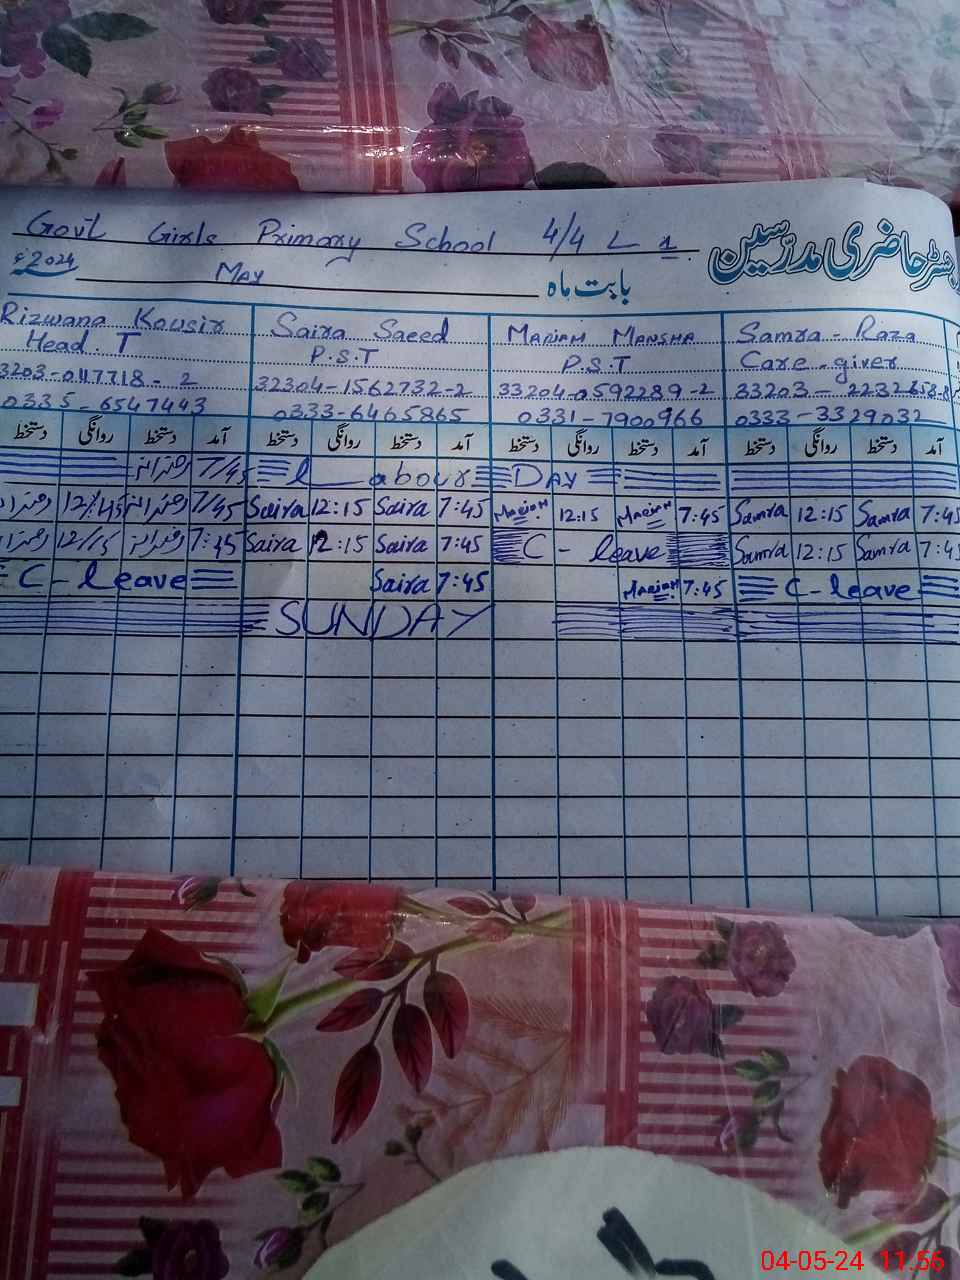 Govt Girls Primary School 4/4 L 1
حاضری مدرّسین
بابت ماہ May 2024ء
Rizwana Kousir Saira Saeed Mariam Mansha Samra - Raza
Head. T P.S.T P.S.T Care-giver
33203-0117718-2 32304-1562732-2 33204-0592289-2 33203
0335-6547443 0333-6465865 0331-7900966 0333-3329032
دستخط روانگی دستخط آمد دستخط روانگی دستخط آمد دستخط روانگی دستخط آمد دستخط روانگی دستخط آمد
7/45 Labour Day
12/45 7/45 Saira 12:15 Saira 7:45 Mariam 12:15 Mariam 7:45 Samra 12:15 Samra 7:45
12/15 7:45 Saira 12:15 Saira 7:45 C-leave Samra 12:15 Samra 7:4
C-leave Saira 7:45 Mariam 7:45 C-leave
SUNDAY
04-05-24 11:56